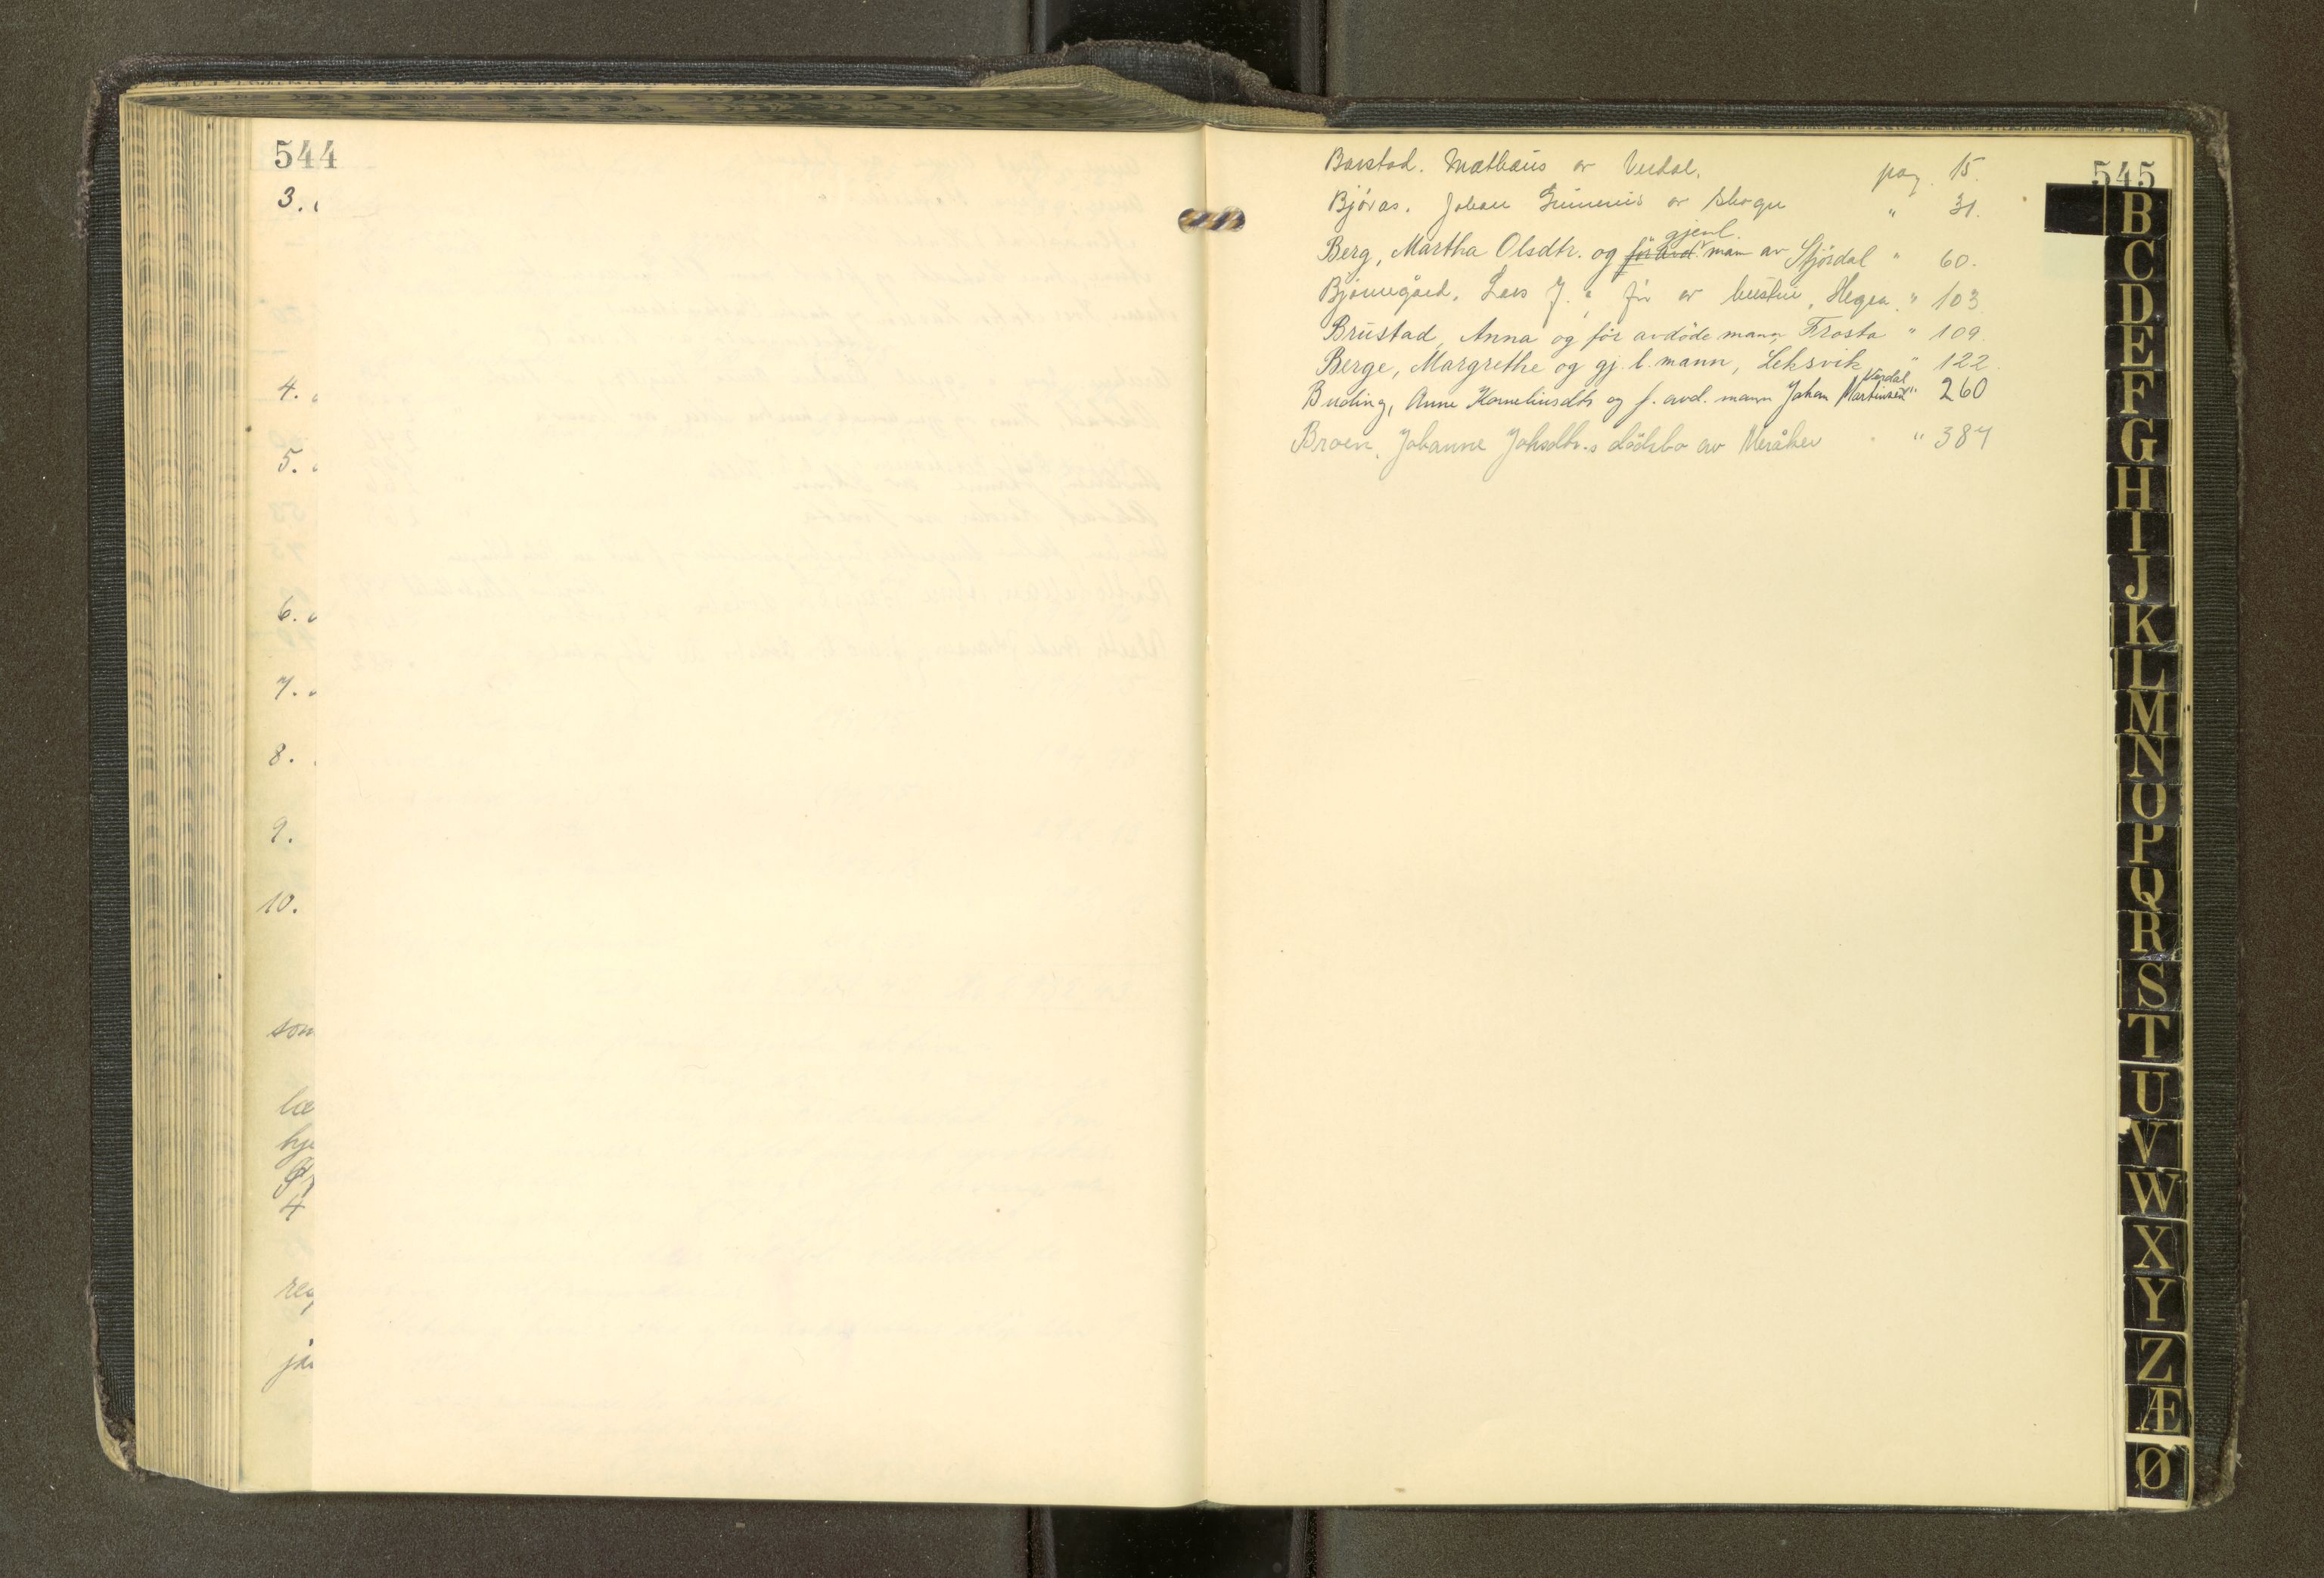 544
3.
4.
5.
6.
7.
8.
9.
10.
som
læ
hje
4
reg
jar
545
Barstad. Mathæus av Verdal. pag. 15.
Bjørås. Johan Gunerius av Skogn " 31.
gjenl.
Berg, Martha Olsdtr. og før avd. man av Stjørdal " 60.
Bjørnegård, Lars J. " før av hustru, Hegra " 103
Brustad, Anna og før avdøde mann, Frosta " 109.
Berge, Margrethe og gj. l. mann, Leksvik " 122.
Verdal
Buding, Anne Korneliusdtr og f. avd. mann Johan Martinsen " 260
Broen, Johanne Johsdtr.s dødsbo av Meråker " 387
B
C
D
E
F
G
H
I
J
K
L
M
N
O
P
Q
R
S
T
U
V
W
X
Y
Z
Æ
Ø